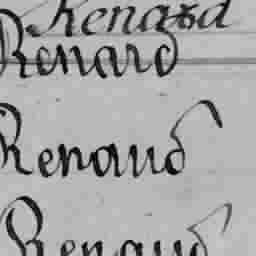 Renard
Renard
Renaud
Renaud